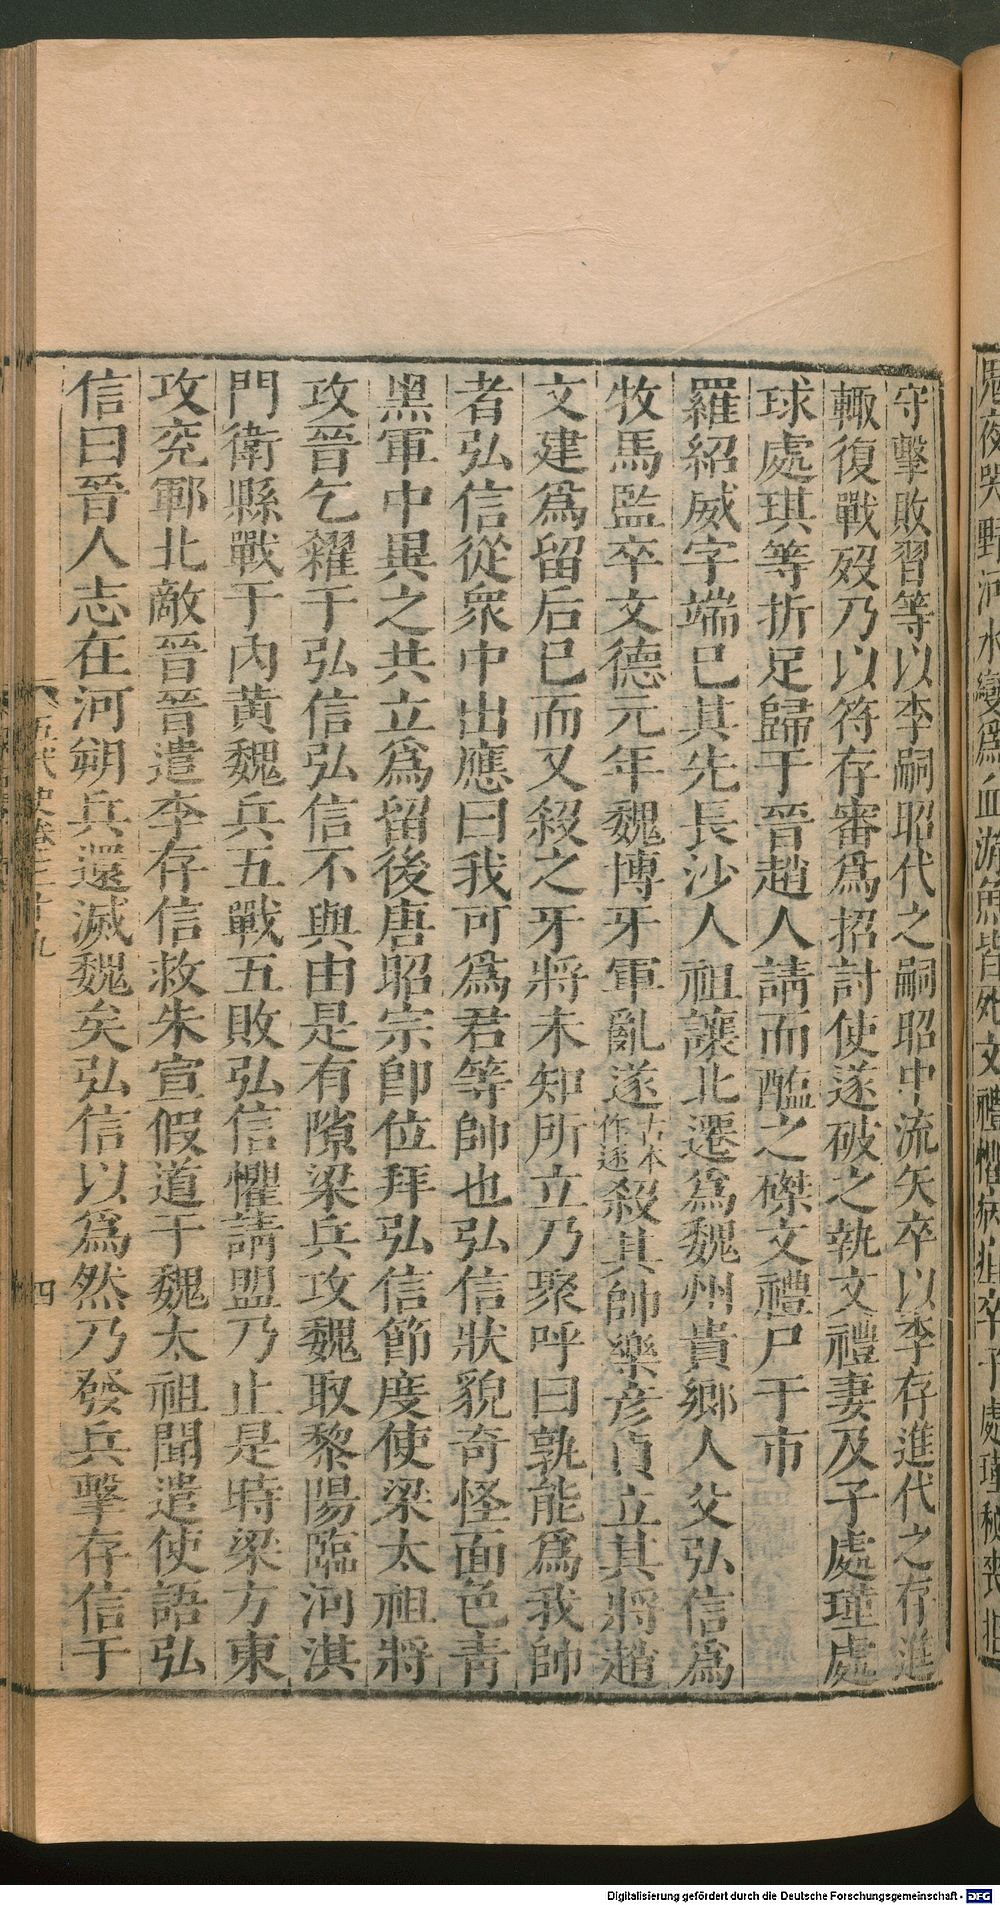 守擊敗習等以李嗣昭代之嗣昭中流矢卒以李存進代之存進
輙復戰歿乃以符存審爲招討使遂破之執文禮妻及子處瑾處
球處琪等折足歸于晉趙人請而醢之磔文禮尸于市
羅紹威字端已其先長沙人祖讓北遷爲魏州貴鄉人父弘信爲
牧馬監卒文德元年魏博牙軍亂遂古本作逐殺其帥樂彦貞立其將趙
文建爲留后已而又殺之牙將未知所立乃聚呼曰孰能爲我帥
者弘信從衆中出應曰我可爲君等帥也弘信狀貌奇怪面色青
黑軍中異之共立爲留後唐昭宗卽位拜弘信節度使梁太祖將
攻晉乞糴于弘信弘信不與由是有隙梁兵攻魏取黎陽臨河淇
門衛縣戰于內黃魏兵五戰五敗弘信懼請盟乃止是時梁方東
攻兖鄆北敵晉晉遣李存信救朱宣假道于魏太祖聞遣使語弘
信曰晉人志在河朔兵還滅魏矣弘信以爲然乃發兵擊存信于
五代史卷三十九
四
Digitalisierung gefördert durch die Deutsche Forschungsgemeinschaft - DFG